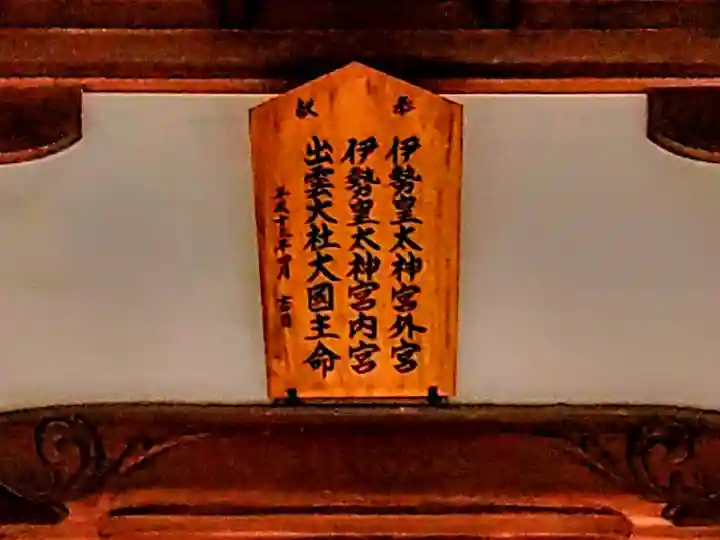 奉献
伊勢皇太神宮外宮
伊勢皇太神宮内宮
出雲大社大国主命
平成十三年四月 吉日